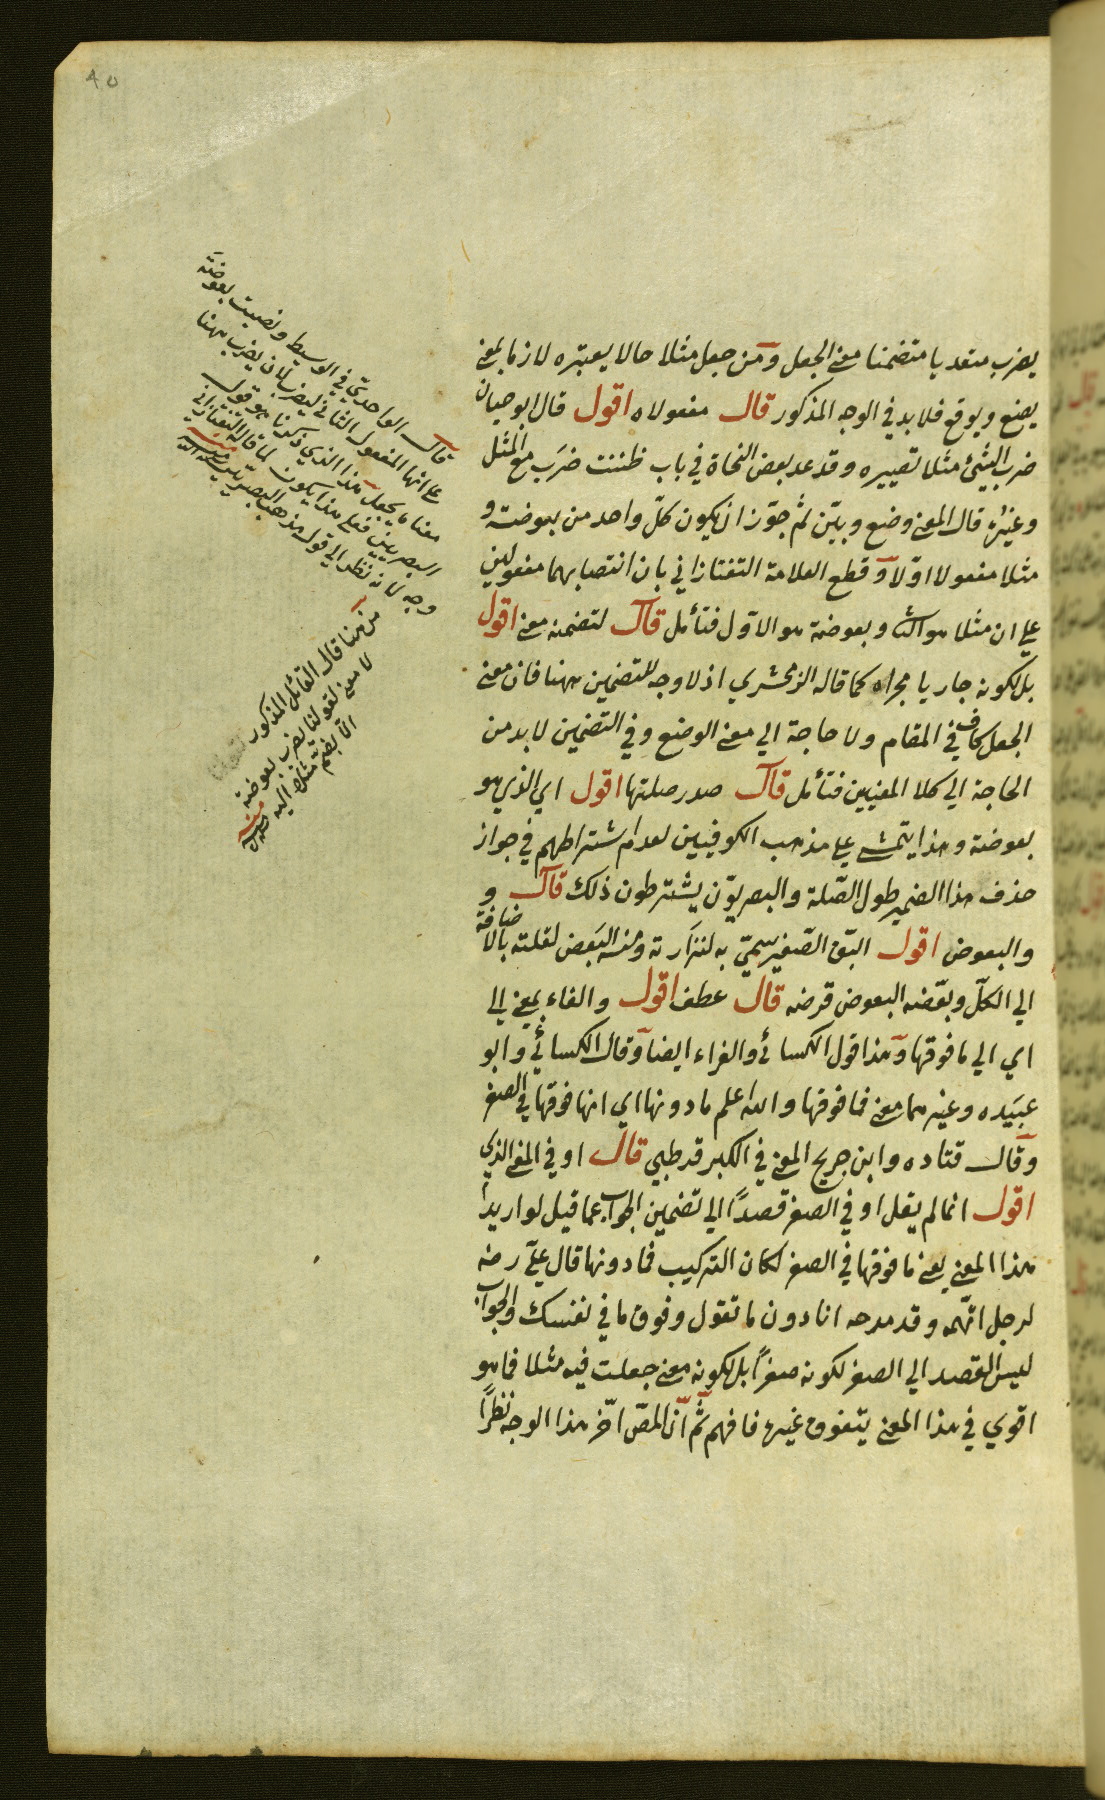 ٤٥
يضرب متعديا متضمنا معنى الجعل ومن جعل مثلا حالا يعتبره لازما بمعنى
يصنع ويوقع فلا بد في الوجه المذكور قال مفعولاه اقول قال ابو حيان
ضرب الشيئ مثلا تصييره وقد عد بعض النحاة في باب ظننت ضرب مع المثل
وغيره قال المعنى وضع وبين ثم جوز ان يكون كل واحد من بعوضة و
مثلا مفعولا اولا وقطع العلامة التفتازاني بان انتصابهما مفعولين
على ان مثلا هو الثا وبعوضة هو الاول فتأمل قال لتضمنه معنى اقول
بل لكونه جاريا مجراه كما قاله الزمخشري اذ لا وجه للتضمين ههنا فان معنى
الجعل كاف في المقام ولا حاجة الي معنى الوضع وفي التضمين لا بد من
الحاجة الي كلا المعنيين فتأمل قال صدر صلتها اقول اي الذي هو
بعوضة وهذا يتمشى على مذهب الكوفيين لعدم اشتراطهم في جواز
حذف هذا الضمير طول الصلة والبصريون يشترطون ذلك قال و
والبعوض اقول البق الصغير سمي به لنزارته ومنه البعض لقلته بالاضافة
الي الكل وبعضه البعوض قرضه قال عطف اقول والفاء بمعنى الي
اي الي ما فوقها وهذا قول الكسائي والفراء ايضا وقال الكسائي وابو
عبيده وغيرهما معنى فما فوقها والله اعلم ما دونها اي انها فوقها في الصغر
وقال قتاده وابن جريج المعنى في الكبر قرطبي قال او في المعنى الذي
اقول انما لم يقل او في الصغر قصدا الي تضمين الجواب عما قيل لو اريد
هذا المعنى يعني ما فوقها في الصغر لكان التركيب فما دونها قال علي رضه
لرجل اتهمه وقد مدحه انا دون ما تقول وفوق ما في نفسك والجواب
ليس القصد الي الصغر لكونه صغرا بل لكونه معنى جعلت فيه مثلا فما هو
اقوي في هذا المعنى يتفوق غيره فافهم ثم ان المص اخر هذا الوجه نظرا
قال الواحدي في الوسيط ونصبت بعوضة
على انها المفعول الثاني ليضرب لان يضرب ههنا
معناه يجعل هذا الذي ذكرنا هو قول
البصريين فعلى هذا يكون لما قاله التفتازاني
وجه لانه نظر الي قول مذهب البصريين
من ههنا قال القائل المذكور
لا معنى لقولنا يضرب بعوضة
الا بضم مثلا اليه منه